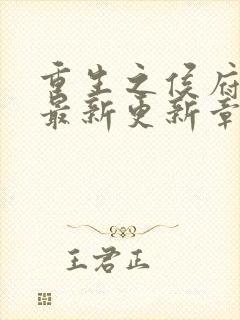 重生之侯府
最新更新章
王君正